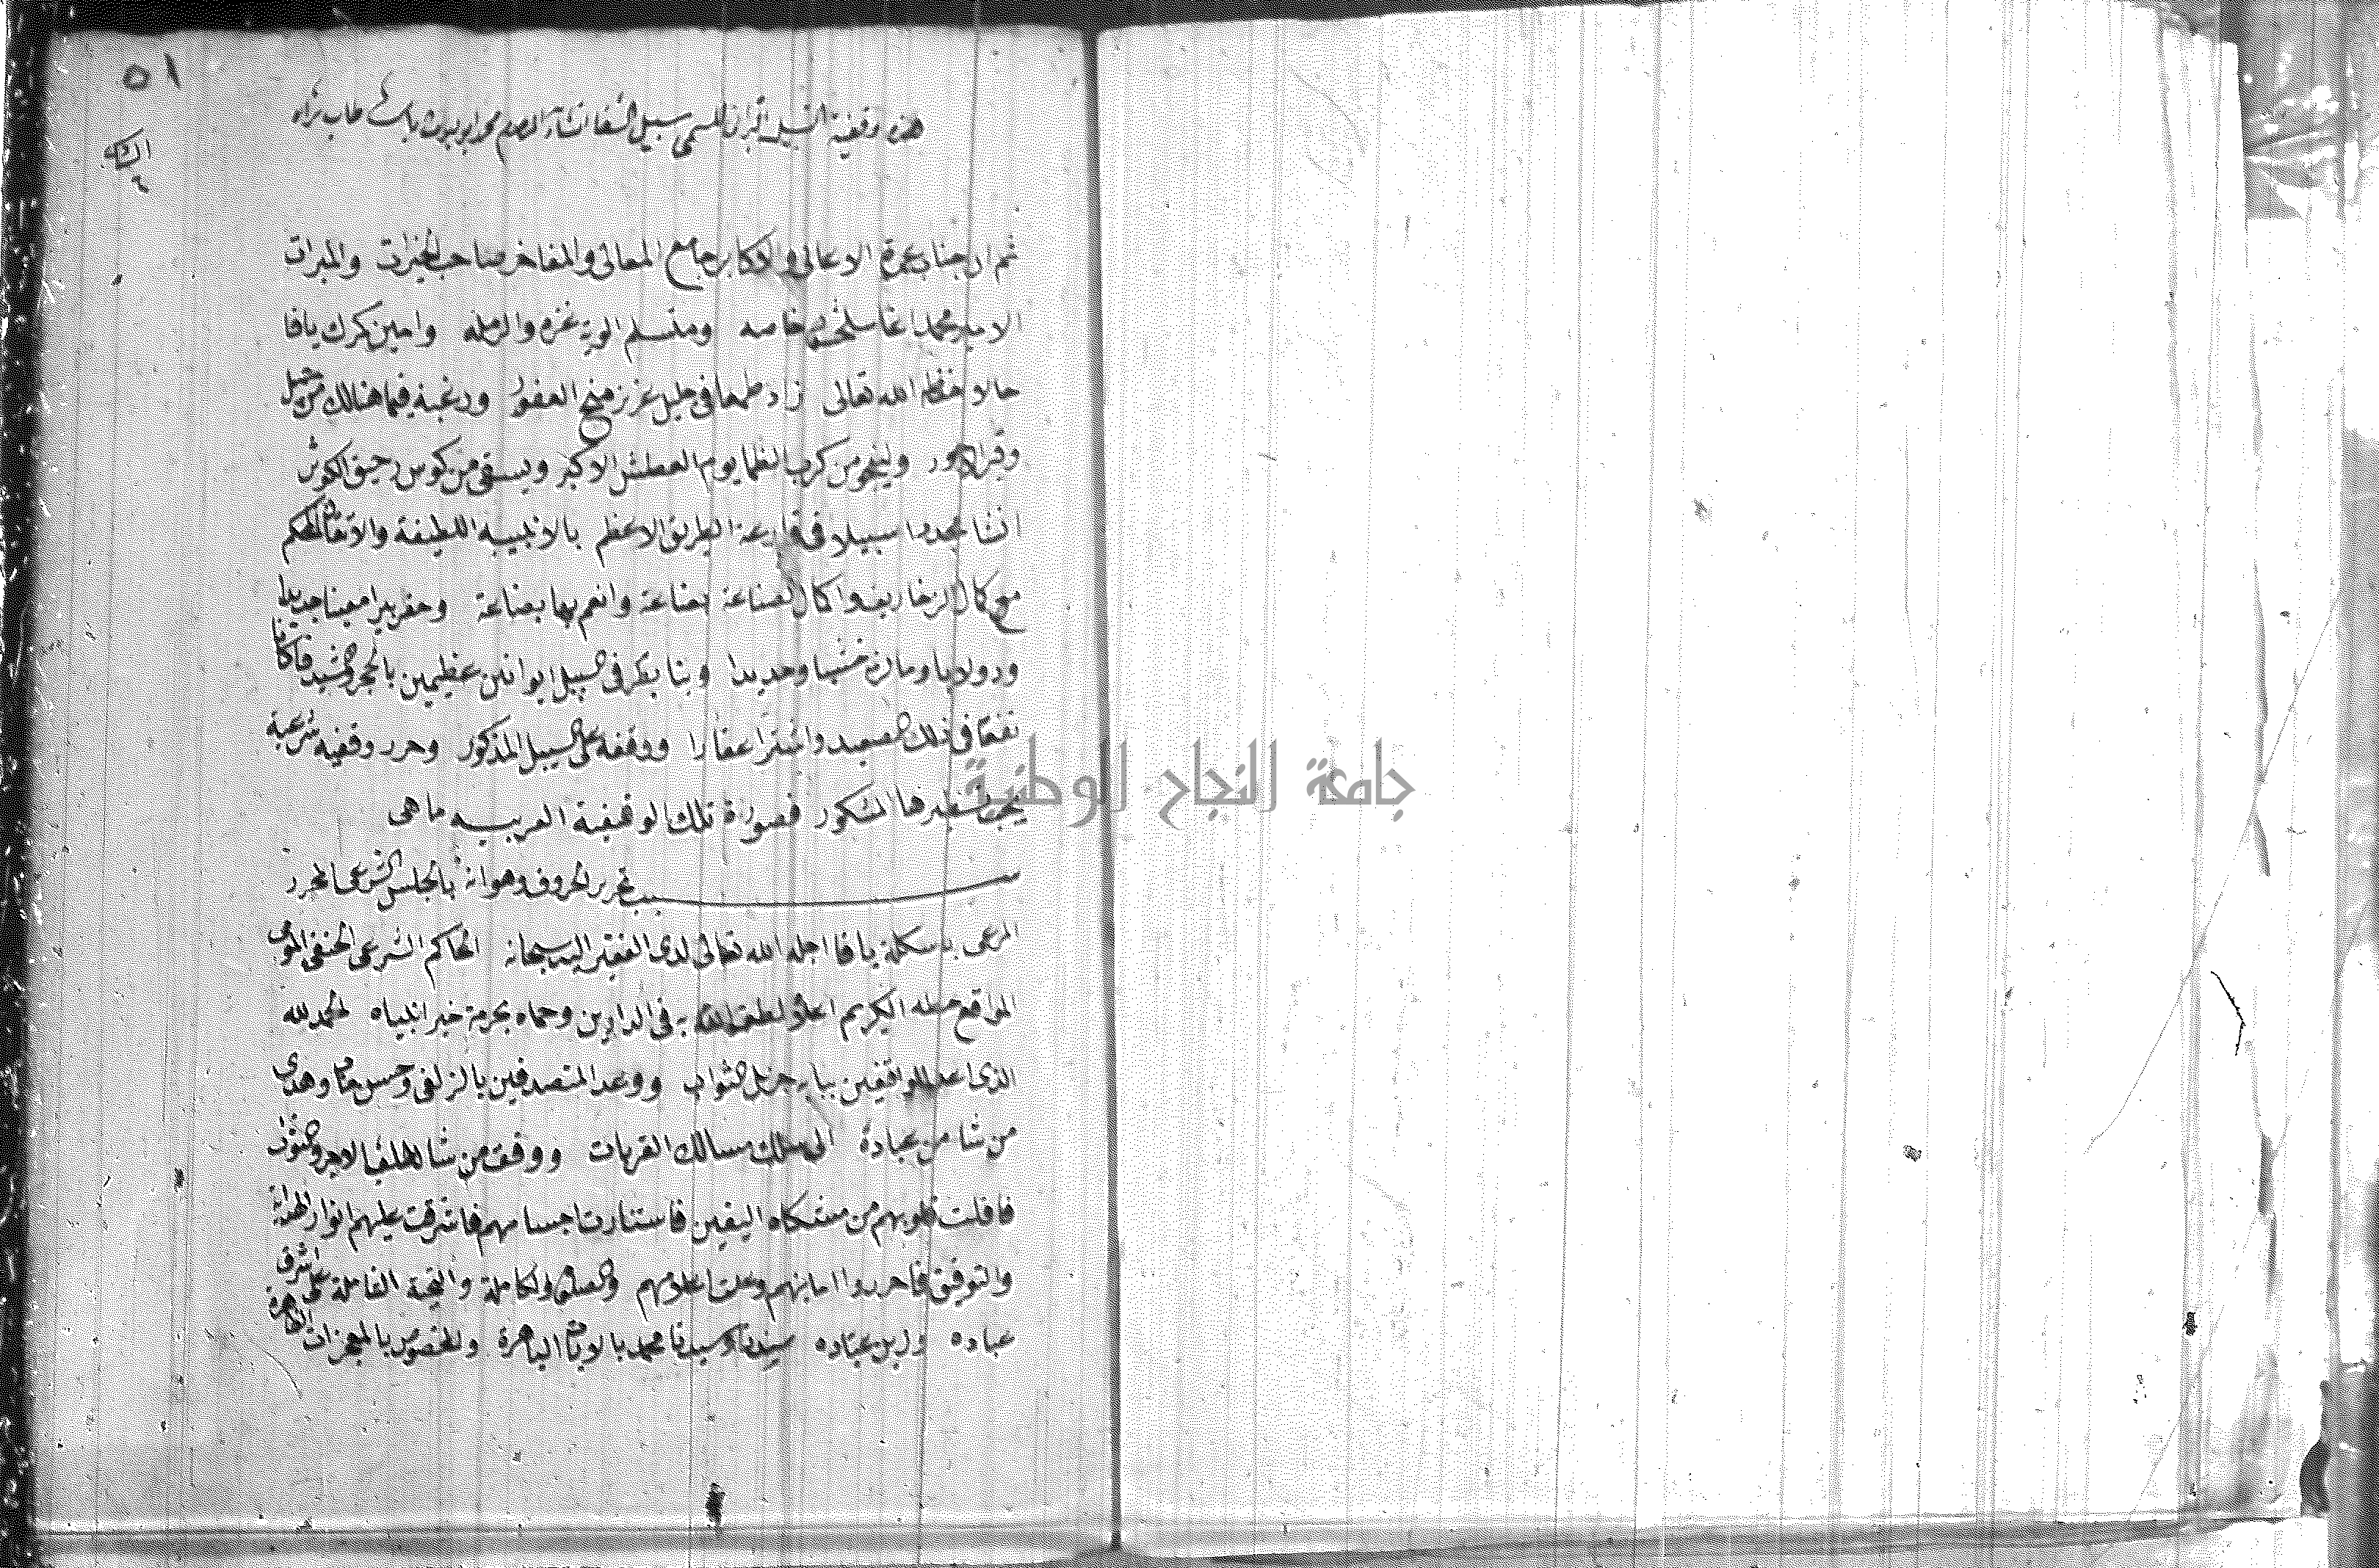 ٥١
هذه وقفية السبيل المسمى سبيل الشفا انشاء محمد ابو نبوت طاب ثراه
ثم ان جناب عمدة الاعالي والاكابر جامع المعالي والمفاخر صاحب الخيرات والمبرات
الامير محمد اغا سلحشور خاصه ومتسلم الوية غزه والرمله وامين كمرك يافا
حالا حفظه الله تعالى زاد طمعا في جليل عزيز منح الغفور ورغبة فيما هنالك من جزيل
وفر الاجور ولينجو من كرب الظما يوم العطش الاكبر ويسقى من كوس رحيق الكوثر
انشا مجددا سبيلا في قارعة الطريق الاعظم بالابنيه اللطيفة والاتقان المحكم
مع كمال الزخاريف واكمال الصناعة بضاعة وانعم بها بضاعة وحفر بيرا معينا جديدا
ودولابا ومازنة خشبا وحديدا وبنا بقرب السبيل ايوانين عظيمين بالحجر والشيد فكانا
نفعا في ذلك الصعيد واشترا عقارا ووقفه على السبيل المذكور وحرر وقفيه شرعية
بختم المشكور فصورة تلك الوقفية العربيه ما هي
سبب تحرير الحروف وهو انه بالمجلس الشرعي المحرر
المرعي باسكلة يافا اجله الله تعالى لدى الفقير اليه سبحانه الحاكم الشرعي الحنفي الموقع
المواقع خطه الكريم اعلاه لطف الله به في الدارين وحماه بحرمة خير انبياه الحمد لله
الذي اعد للواقفين ببابه جزيل الثواب ووعد المتصدقين بالزلفى وحسن ماب وهدى
من شا من عباده الى سلك مسالك القربات ووفق من شا لطلب الاجر والثواب
قلوبهم من مشكاه اليقين فاستنارت اجسامهم فاشرقت عليهم انوار الهداية
والتوفيق والصلاة الكاملة والتحية الفاضلة على اشرف
عباده سيدنا وسندنا محمد بالايات الباهرة والمخصوص بالمعجزات الظاهرة
جامعة النجاح الوطنية